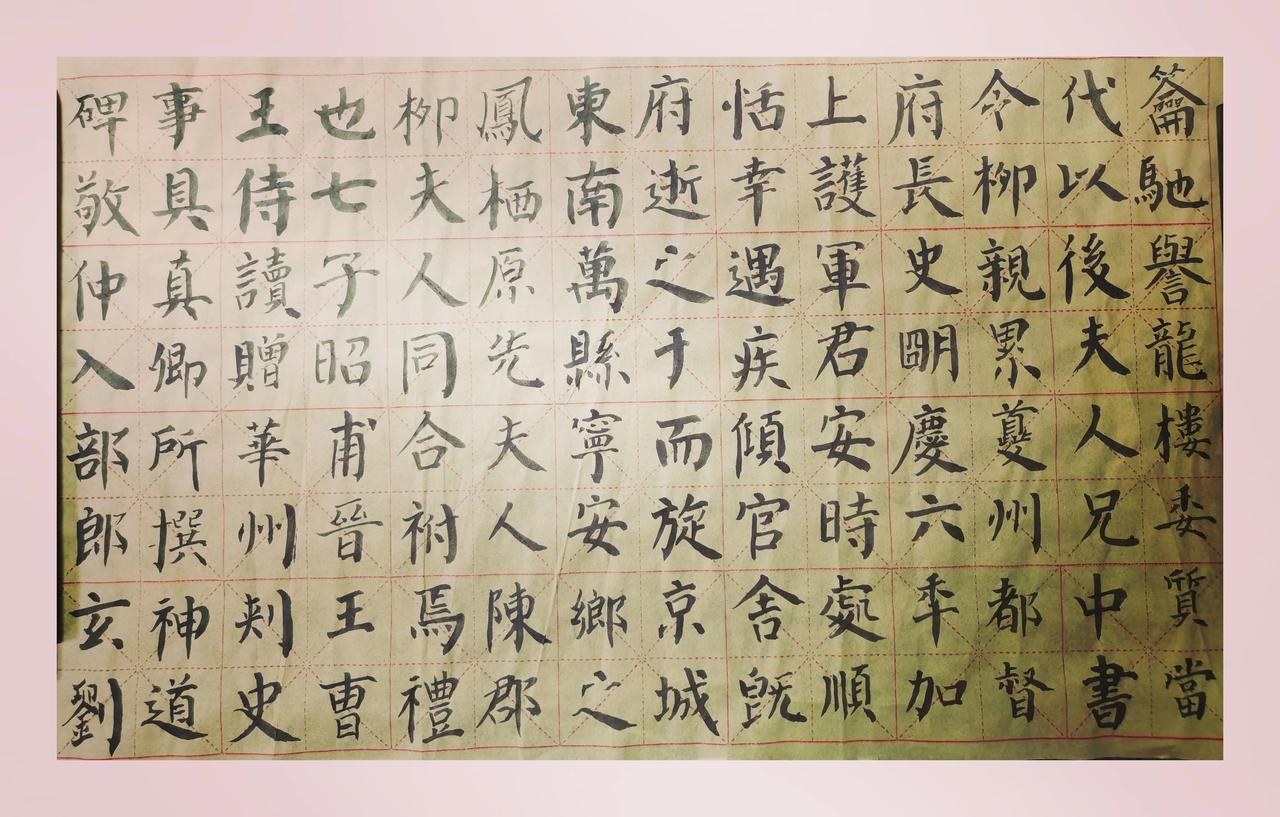 籥馳譽龍樓委質當
代以後夫人兄中書
令栁親累夔州都督
府長史朙慶六年加
上護軍君安時處順
恬幸遇疾傾官舍既
府逝之于而旋京城
東南萬縣寧安鄉之
鳳栖原先夫人陳郡
栁夫人同合祔焉禮
也七子昭甫晉王曹
王侍讀贈華州刾史
事具真卿所撰神道
碑敬仲入部郎玄劉